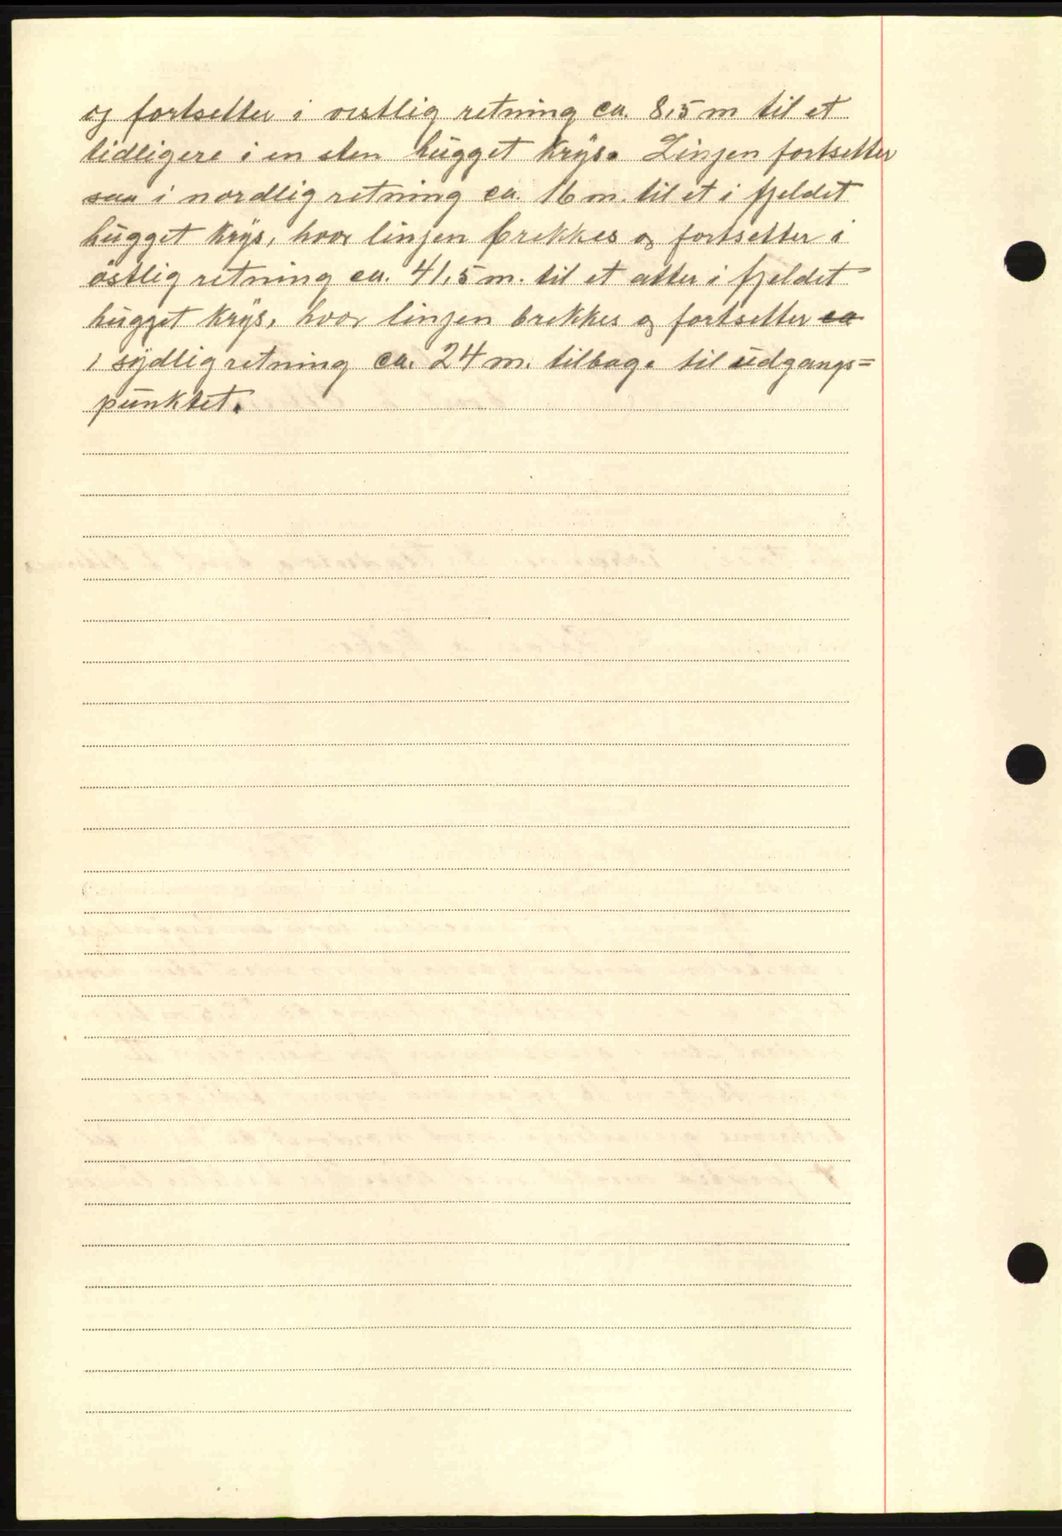 og fortsetter i vestlig retning ca. 8,5 m til et
tidligere i en sten hügget krÿs. Linjen fortsetter
saa i nordlig retning ca. 16 m. til et i fjeldet
hügget krÿs, hvor linjen brekkes og fortsetter i
östlig retning ca. 41,5 m. til et atter i fjeldet
hügget krÿs, hvor linjen brekkes og fortsetter ca
i sÿdlig retning ca. 24 m. tilbage til üdgangs=
pünktet.